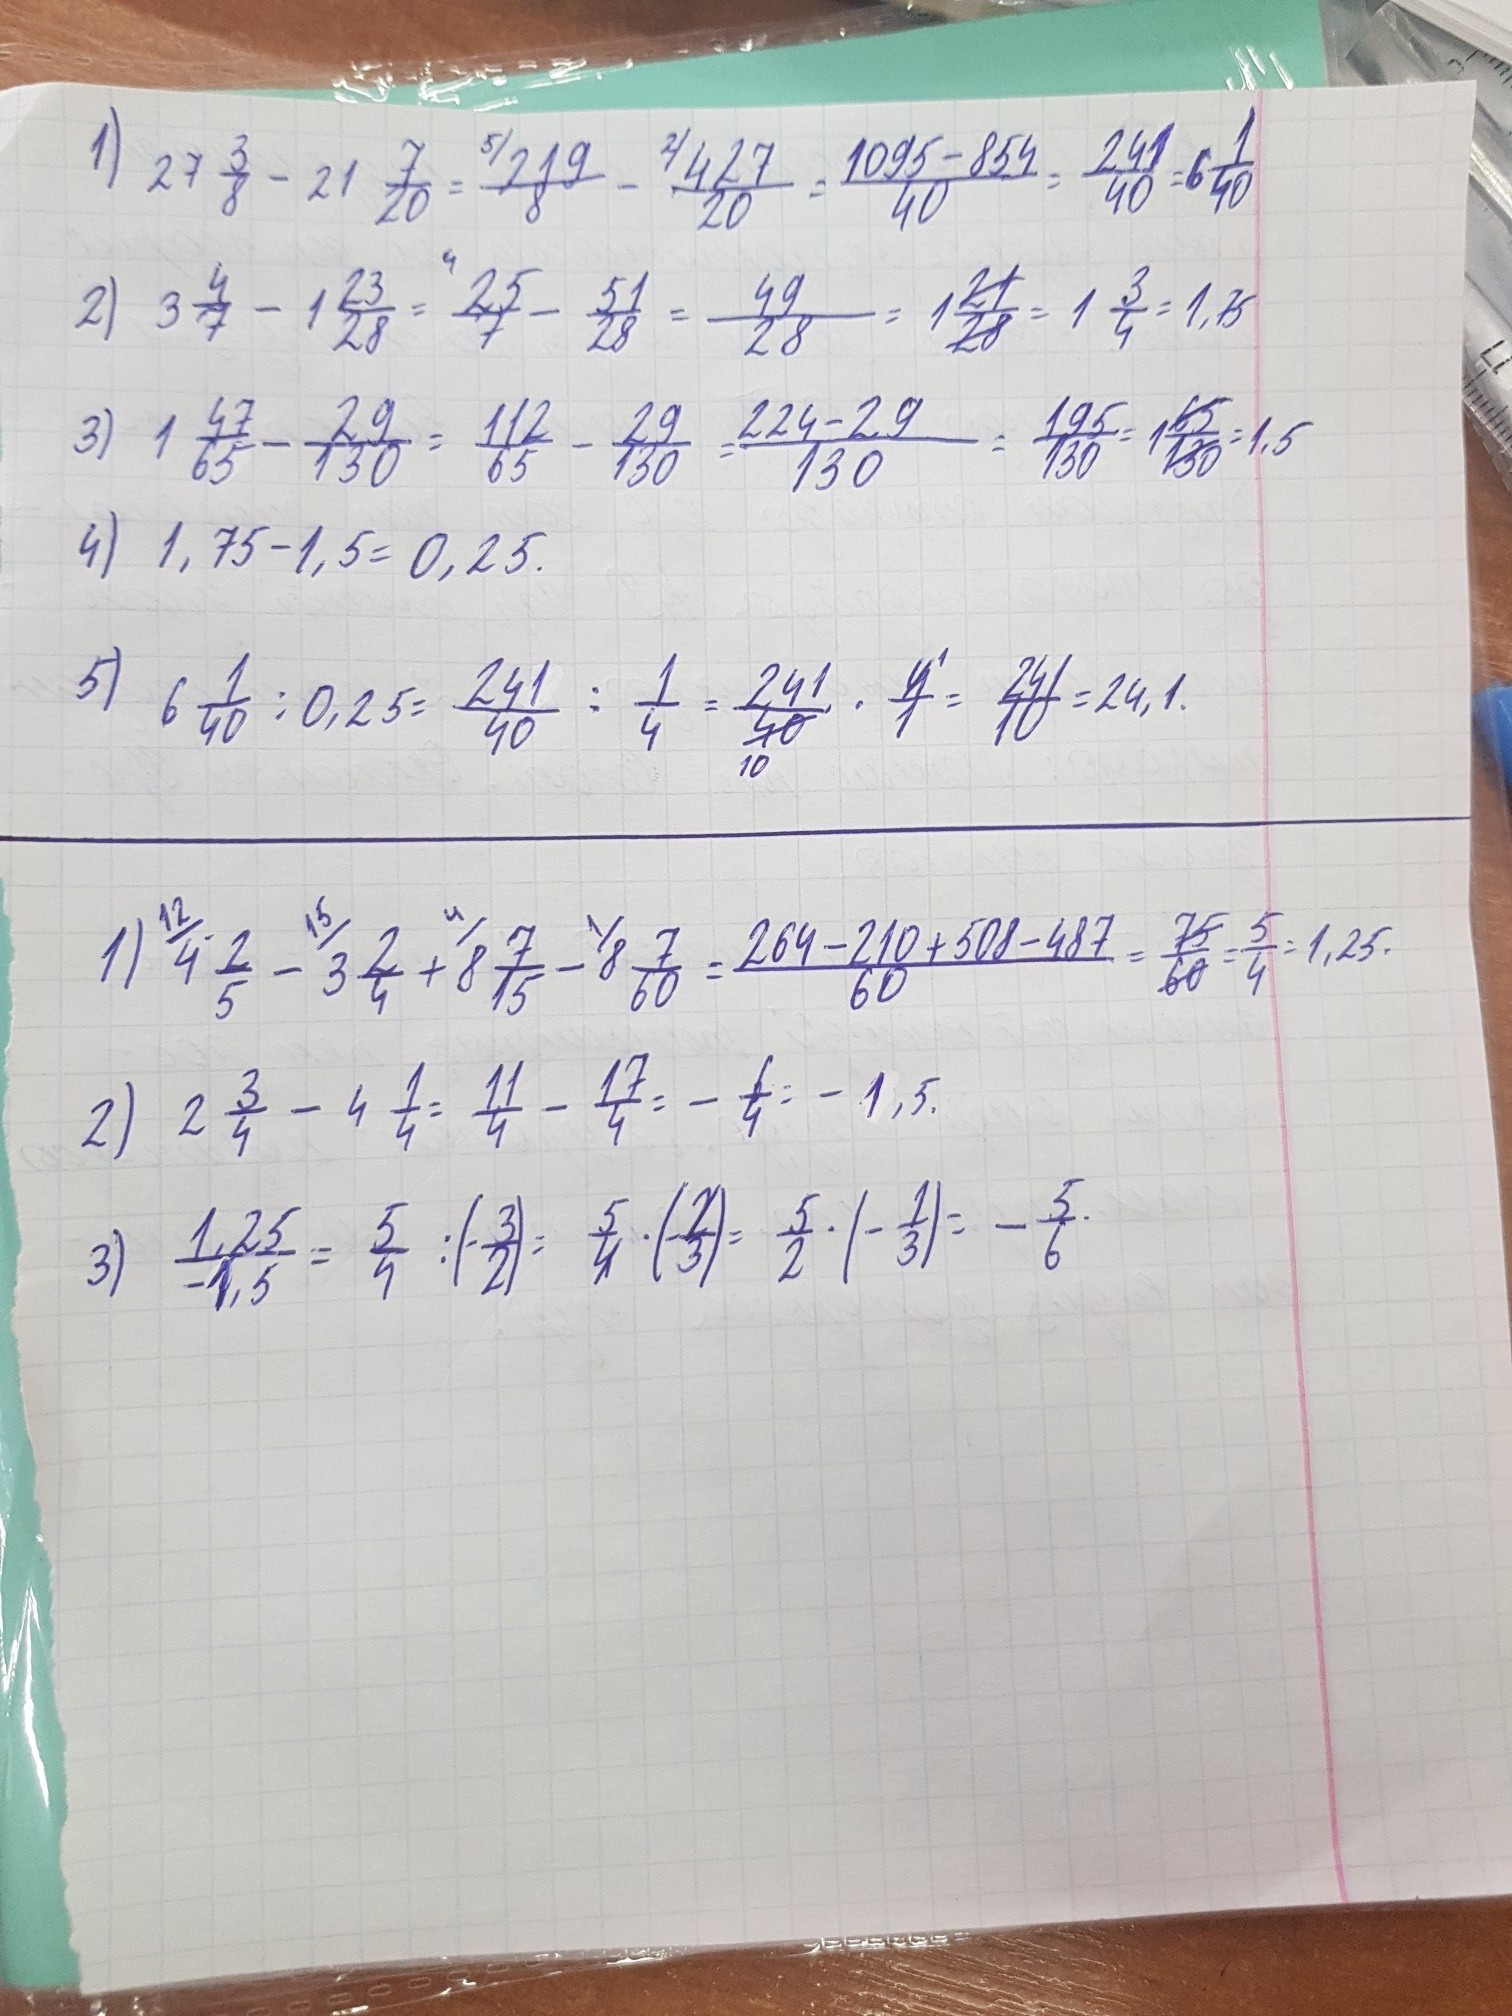 1) 27 3/8 - 21 7/20 = 5/ 219/8 - 2/ 427/20 = (1095-854)/40 = 241/40 = 6 1/40
2) 3 4/7 - 1 23/28 = 4 25/7 - 51/28 = 49/28 = 1 21/28 = 1 3/4 = 1,75
3) 1 47/65 - 29/130 = 112/65 - 29/130 = (224-29)/130 = 195/130 = 1 65/130 = 1,5
4) 1,75-1,5 = 0,25.
5) 6 1/40 : 0,25 = 241/40 : 1/4 = 241/40 10 · 4 1/1 = 241/10 = 24,1.
1) 12/ 4 2/5 - 15/ 3 2/4 + 4/ 8 7/15 - 1/ 8 7/60 = (264-210+508-487)/60 = 75/60 = 5/4 = 1,25.
2) 2 3/4 - 4 1/4 = 11/4 - 17/4 = - 6/4 = - 1,5.
3) 1,25/-1,5 = 5/4 : (- 3/2) = 5/4 · (- 2/3) = 5/2 · (- 1/3) = - 5/6.